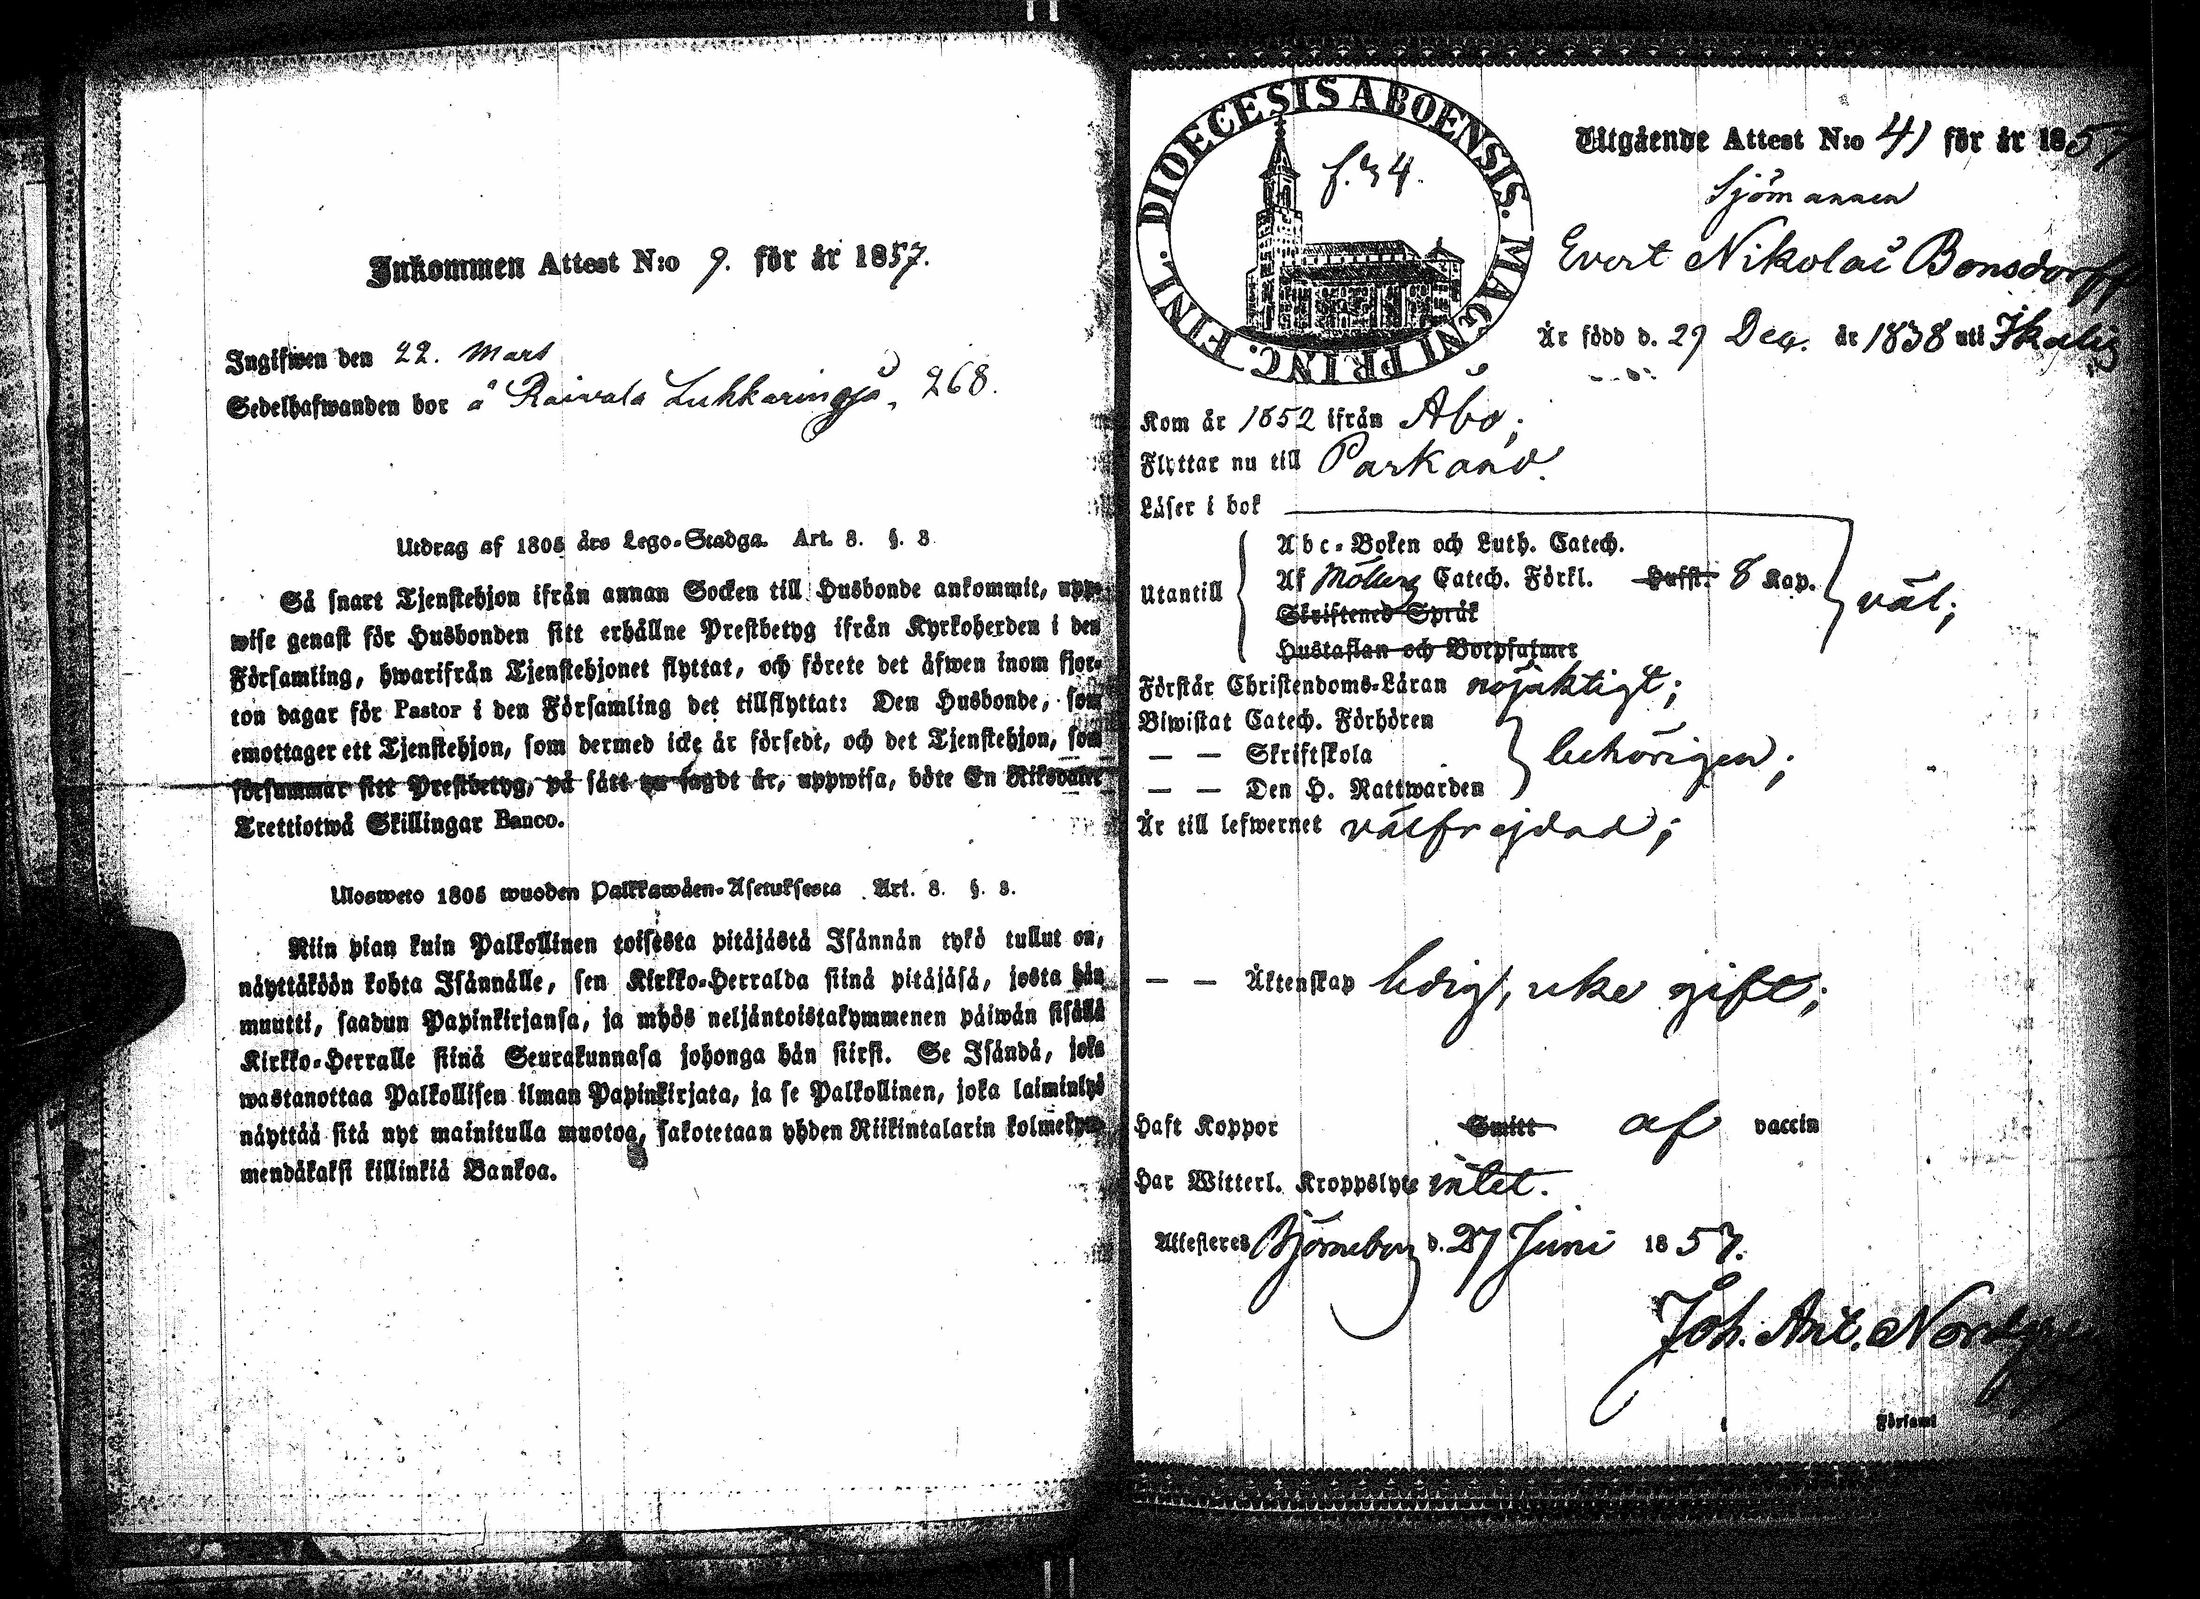 Inkommen Attest N:o 9. för år 1857.
Ingifwen den 22. Mars
Sedelhafwanden bor å Raivala Luhkaringsjö, 268.
Utdrag af 1805 års Lego-Stadga. Art. 8. §. 3
Så snart Tjenstehjon ifrån annan Socken till Husbonde ankommit, upp-
wise genast för Husbonden sitt erhållne Prestbetyg ifrån Kyrkoherden i den
Församling, hwarifrån Tjenstehjonet flyttat, och förete det äfwen inom fjor-
ton dagar för Pastor i den Församling det tillflyttat: Den Husbonde, som
emottager ett Tjenstehjon, som dermed icke är försedt, och det Tjenstehjon, som
försummar sitt Prestbetyg, på sätt nu sagdt är, uppwisa, böte En Riksdaler
Trettiotwå Skillingar Banco.
Ulosweto 1805 wuoden Palkkawäen-Asetuksesta Art. 8. §. 3.
Niin pian kuin Palkollinen toisesta pitäjästä Isännän tykö tullut on,
näyttäköön kohta Isännälle, sen Kirkko-Herralda siinä pitäjäsä, josta hän
muutti, saadun Papinkirjansa, ja myös neljäntoistakymmenen päiwän sisällä
Kirkko-Herralle siinä Seurakunnasa johonga hän siirsi. Se Isändä, joka
wastanottaa Palkollisen ilman Papinkirjata, ja se Palkollinen, joka laiminlyö
näyttää sitä nyt mainitulla muotoa, sakotetaan yhden Riikintalarin kolmekym-
mendäkaksi killinkiä Bankoa.
DIOECESIS ABOENSIS. MAGNI PRINC. FINL.
f. 34.
Utgående Attest N:o 41 för år 1857
Sjömannen
Evert Nikolai Bonsdorff
Är född d. 29 Dec. år 1838 uti Ikalis
Kom år 1852 ifrån Åbo;
Flyttar nu till Parkano.
Läser i bok
Utantill
Abc-Boken och Luth. Catech.
Af Möllers Catech. Förkl. Hufst. 8 Kap.
Skriftenes Språk
Hustaflan och Botpsalmer
väl;
Förstår Christendoms-Läran nöjaktigt;
Biwistat Catech. Förhören
— — Skriftskola
— — Den H. Nattwarden
behörigen;
Är till lefwernet välfrejdad;
— — Äktenskap ledig, icke gift;
Haft Koppor Smitt af vaccin
Har Witterl. Kroppslyte intet.
Attesteres Björneborg d. 27 Juni 1857.
Joh. Ant. Nordgren
i Församl